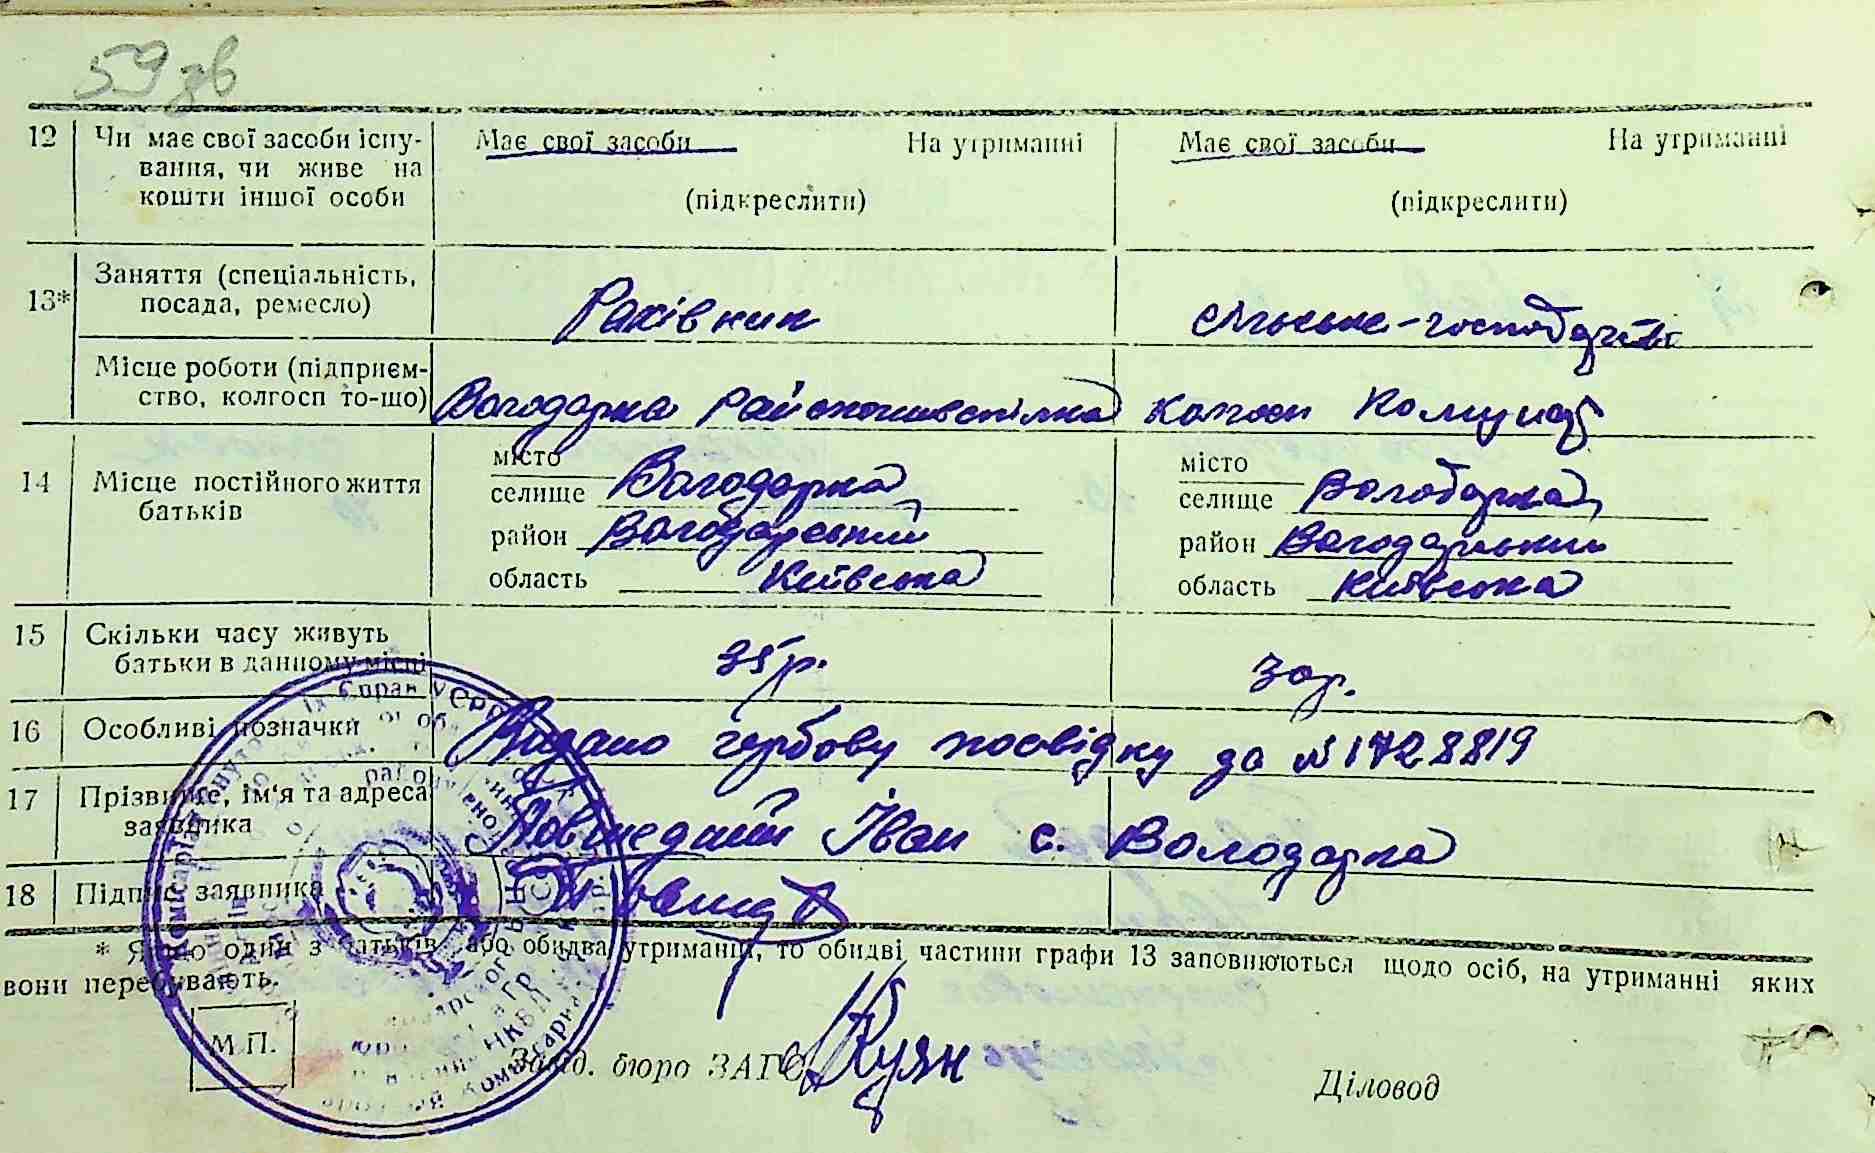 59 зв
12 Чи має свої засоби існу- Має свої засоби На утриманні Має свої засоби На утриманні
вання, чи живе на
кошти іншої особи (підкреслити) (підкреслити)
Заняття (спеціальність,
13* посада, ремесло) Рахівник сільське-господарство
Місце роботи (підприєм-
ство, колгосп то-що) Володарка Райспоживспілка Колгосп Комунар
місто місто
14 Місце постійного життя селище Володарка селище Володарка
батьків район Володарський район Володарський
область Київська область Київська
15 Скільки часу живуть
батьки в данному місці 35 р. 30 р.
16 Особливі позначки Видано гербову посвідку до №1728819
17 Прізвище, ім'я та адреса
заявника Іван с. Володарка
18 Підпис заявника
* Якщо один з батьків або обидва утриманці, то обидві частини графи 13 заповнюються щодо осіб, на утриманні яких
вони перебувають.
М.П. Завід. бюро ЗАГС Куян Діловод